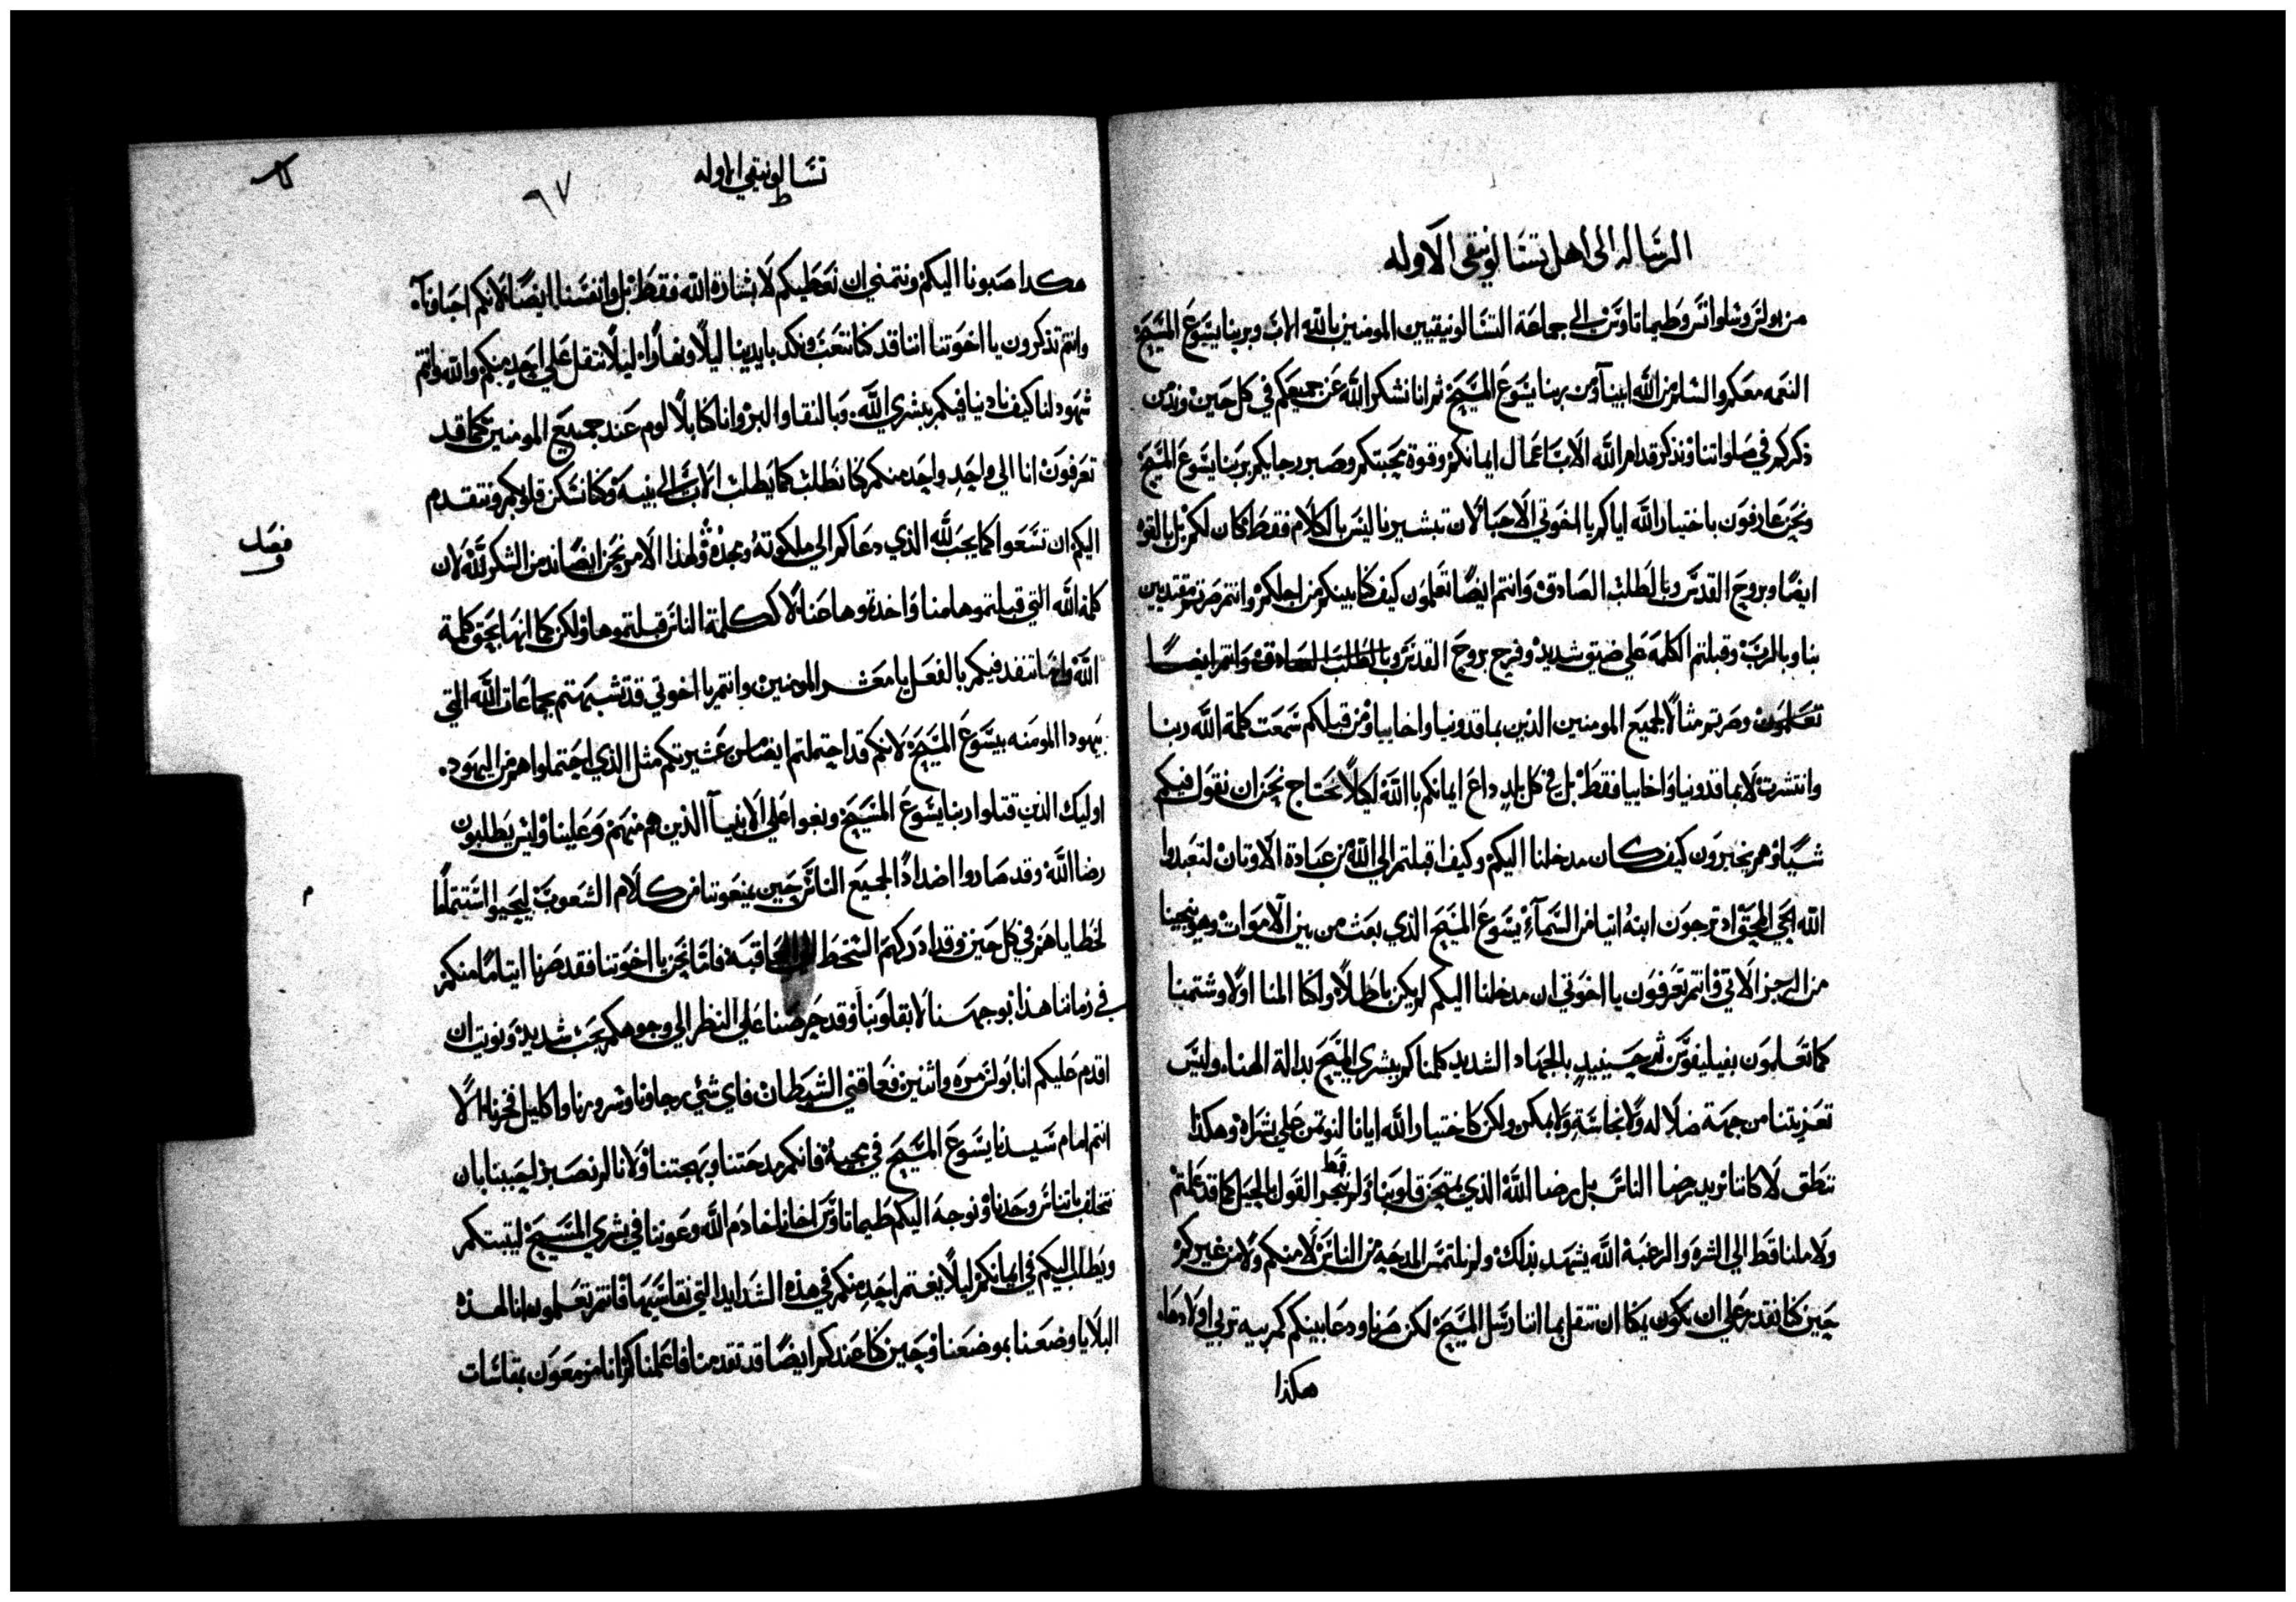 الرساله الى اهل تسالونيقى الاوله
من بولس وسلوانس وطيماتاوس الى جماعة التسالونيقيين المومنين بالله الاب وبربنا يسوع المسيح
النعمه معكم والسلم من الله ابينا ومن ربنا يسوع المسيح ثم انا نشكر الله عن جميعكم في كل حين وندمن
ذكركم في صلواتنا ونذكر قدام الله الاب اعمال ايمانكم وقوة محبتكم وصبر رجايكم بربنا يسوع المسيح
ونحن عارفون باختيار الله اياكم يا اخوتي الاحبا لان تبشيرنا ليس بالكلام فقط كان لكم بل بالقوه
ايضا وبروح القدس وبالطلب الصادق وانتم ايضا تعلمون كيف كنا بينكم من اجلكم وانتم صرتم مقتديين
بنا وبالرب وقبلتم الكلمه علي ضيق شديد وفرح بروح القدس وبالطلب الصادق وانتم ايضا
تعلمون وصرتم مثالا لجميع المومنين الذين بماقدونيا واخاييا ومن قبلكم سمعت كلمة الله ربنا
وانتشرت لا بماقدونيا واخاييا فقط بل في كل بلد داع ايمانكم بالله لكيلا نحتاج نحن ان نقول فيكم
شيا وهم يخبرون كيف كان مدخلنا اليكم وكيف اقبلتم الي الله من عبادة الاوتان لتعبدوا
الله الحي المحق اد ترجون ابنه اتيا من السماء يسوع المسيح الذي بعث من بين الاموات وهو ينجينا
من الرجز الاتي وانتم تعرفون يا اخوتي ان مدخلنا اليكم لم يكن باطلا ولكنا المنا اولا وشتمنا
كما تعلمون بفيليفوس ثم حينيد بالجهاد الشديد كلمناكم ببشري المسيح بدالة الهنا وليس
تعزيتنا من جهة ضلاله ولا نجاسة ولا بمكر ولكن كاختيار الله ايانا لنوتمن علي بشراه وهكذا
ننطق لا كاننا نريد رضا الناس بل رضا الله الذي يمتحن قلوبنا ولم نتجر قط القول الجميل كما قد علمتم
ولا ملنا قط الي الشره والرغبة الله يشهد بذلك ولم نلتمس المدحه من الناس لا منكم ولا من غيركم
حين كنا نقدر علي ان نكون بمكان نتقل بما اننا رسل المسيح لكن صرنا ودعا بينكم كمربيه تربي اولادها
هكذا
تسالونيقي الاوله
٩٧
هكدا صبونا اليكم ونتمني ان نعطيكم لا بشارة الله فقط بل وانفسنا ايضا لانكم احباونا
وانتم تذكرون يا اخوتنا اننا قد كنا نتعب ونكد بايدينا ليلا ونهارا ليلا نتقل علي احد منكم والله وانتم
شهود لنا كيف نادينا فيكم ببشري الله وبالنقا والبر وانا كنا بلا لوم عند جميع المومنين كما قد
تعرفون انا الي واحد واحد منكم كنا نطلب كما يطلب الاب الى بنيه وكنا نسكن قلوبكم ونتقدم
اليكم ان تسعوا كما يحب لله الذي دعاكم الي ملكوته ومجده ولهذا الامر نحن ايضا ندمن الشكر لله لان
فصل
كلمة الله التي قبلتموها منا واخدتموها عنا لا ككلمة الناس قبلتموها ولكن كما انها بحق كلمة
الله وانها تنفد فيكم بالفعل يا معشر المومنين وانتم يا اخوتي قد تشبهتم بجماعات الله التي
بيهودا المومنه بيسوع المسيح لانكم قد احتملتم ايضا من عشيرتكم مثل الذي احتملوا هم من اليهود
اوليك الذين قتلوا ربنا يسوع المسيح وبغوا علي الانبيا الذين هم منهم وعلينا وليس يطلبون
رضا الله وقد صاروا اضدادا لجميع الناس حين يمنعوننا من كلام الشعوب ليحيوا استتماما
لخطاياهم في كل حين وقد ادركهم السخط الي العاقبة فاما نحن يا اخوتنا فقد صرنا ايتاما منكم
في زماننا هذا بوجهنا لا بقلوبنا وقد حرصنا علي النظر الي وجوهكم بحب شديد ونويت ان
اقدم عليكم انا بولس مره واثنين فعاقني الشيطان فاي شي رجاونا وسرورنا واكليل فخرنا الا
انتم امام سيدنا يسوع المسيح في مجيه فانكم مدحتنا وبهجتنا ولانا لم نصبر احببنا بان
نتخلف باتناس وحدنا ونوجه اليكم طيماتاوس اخانا خادم الله وعوننا في بشري المسيح ليتبتكم
ويطلب اليكم في ايمانكم ليلا يغتم احد منكم في هذه الشدايد التي نقاسيها فانتم تعلمون انا لهذه
البلايا وضعنا بموضعنا وحين كنا عندكم ايضا قد تقدمنا فاعلمناكم انا مزمعون بمقاسات